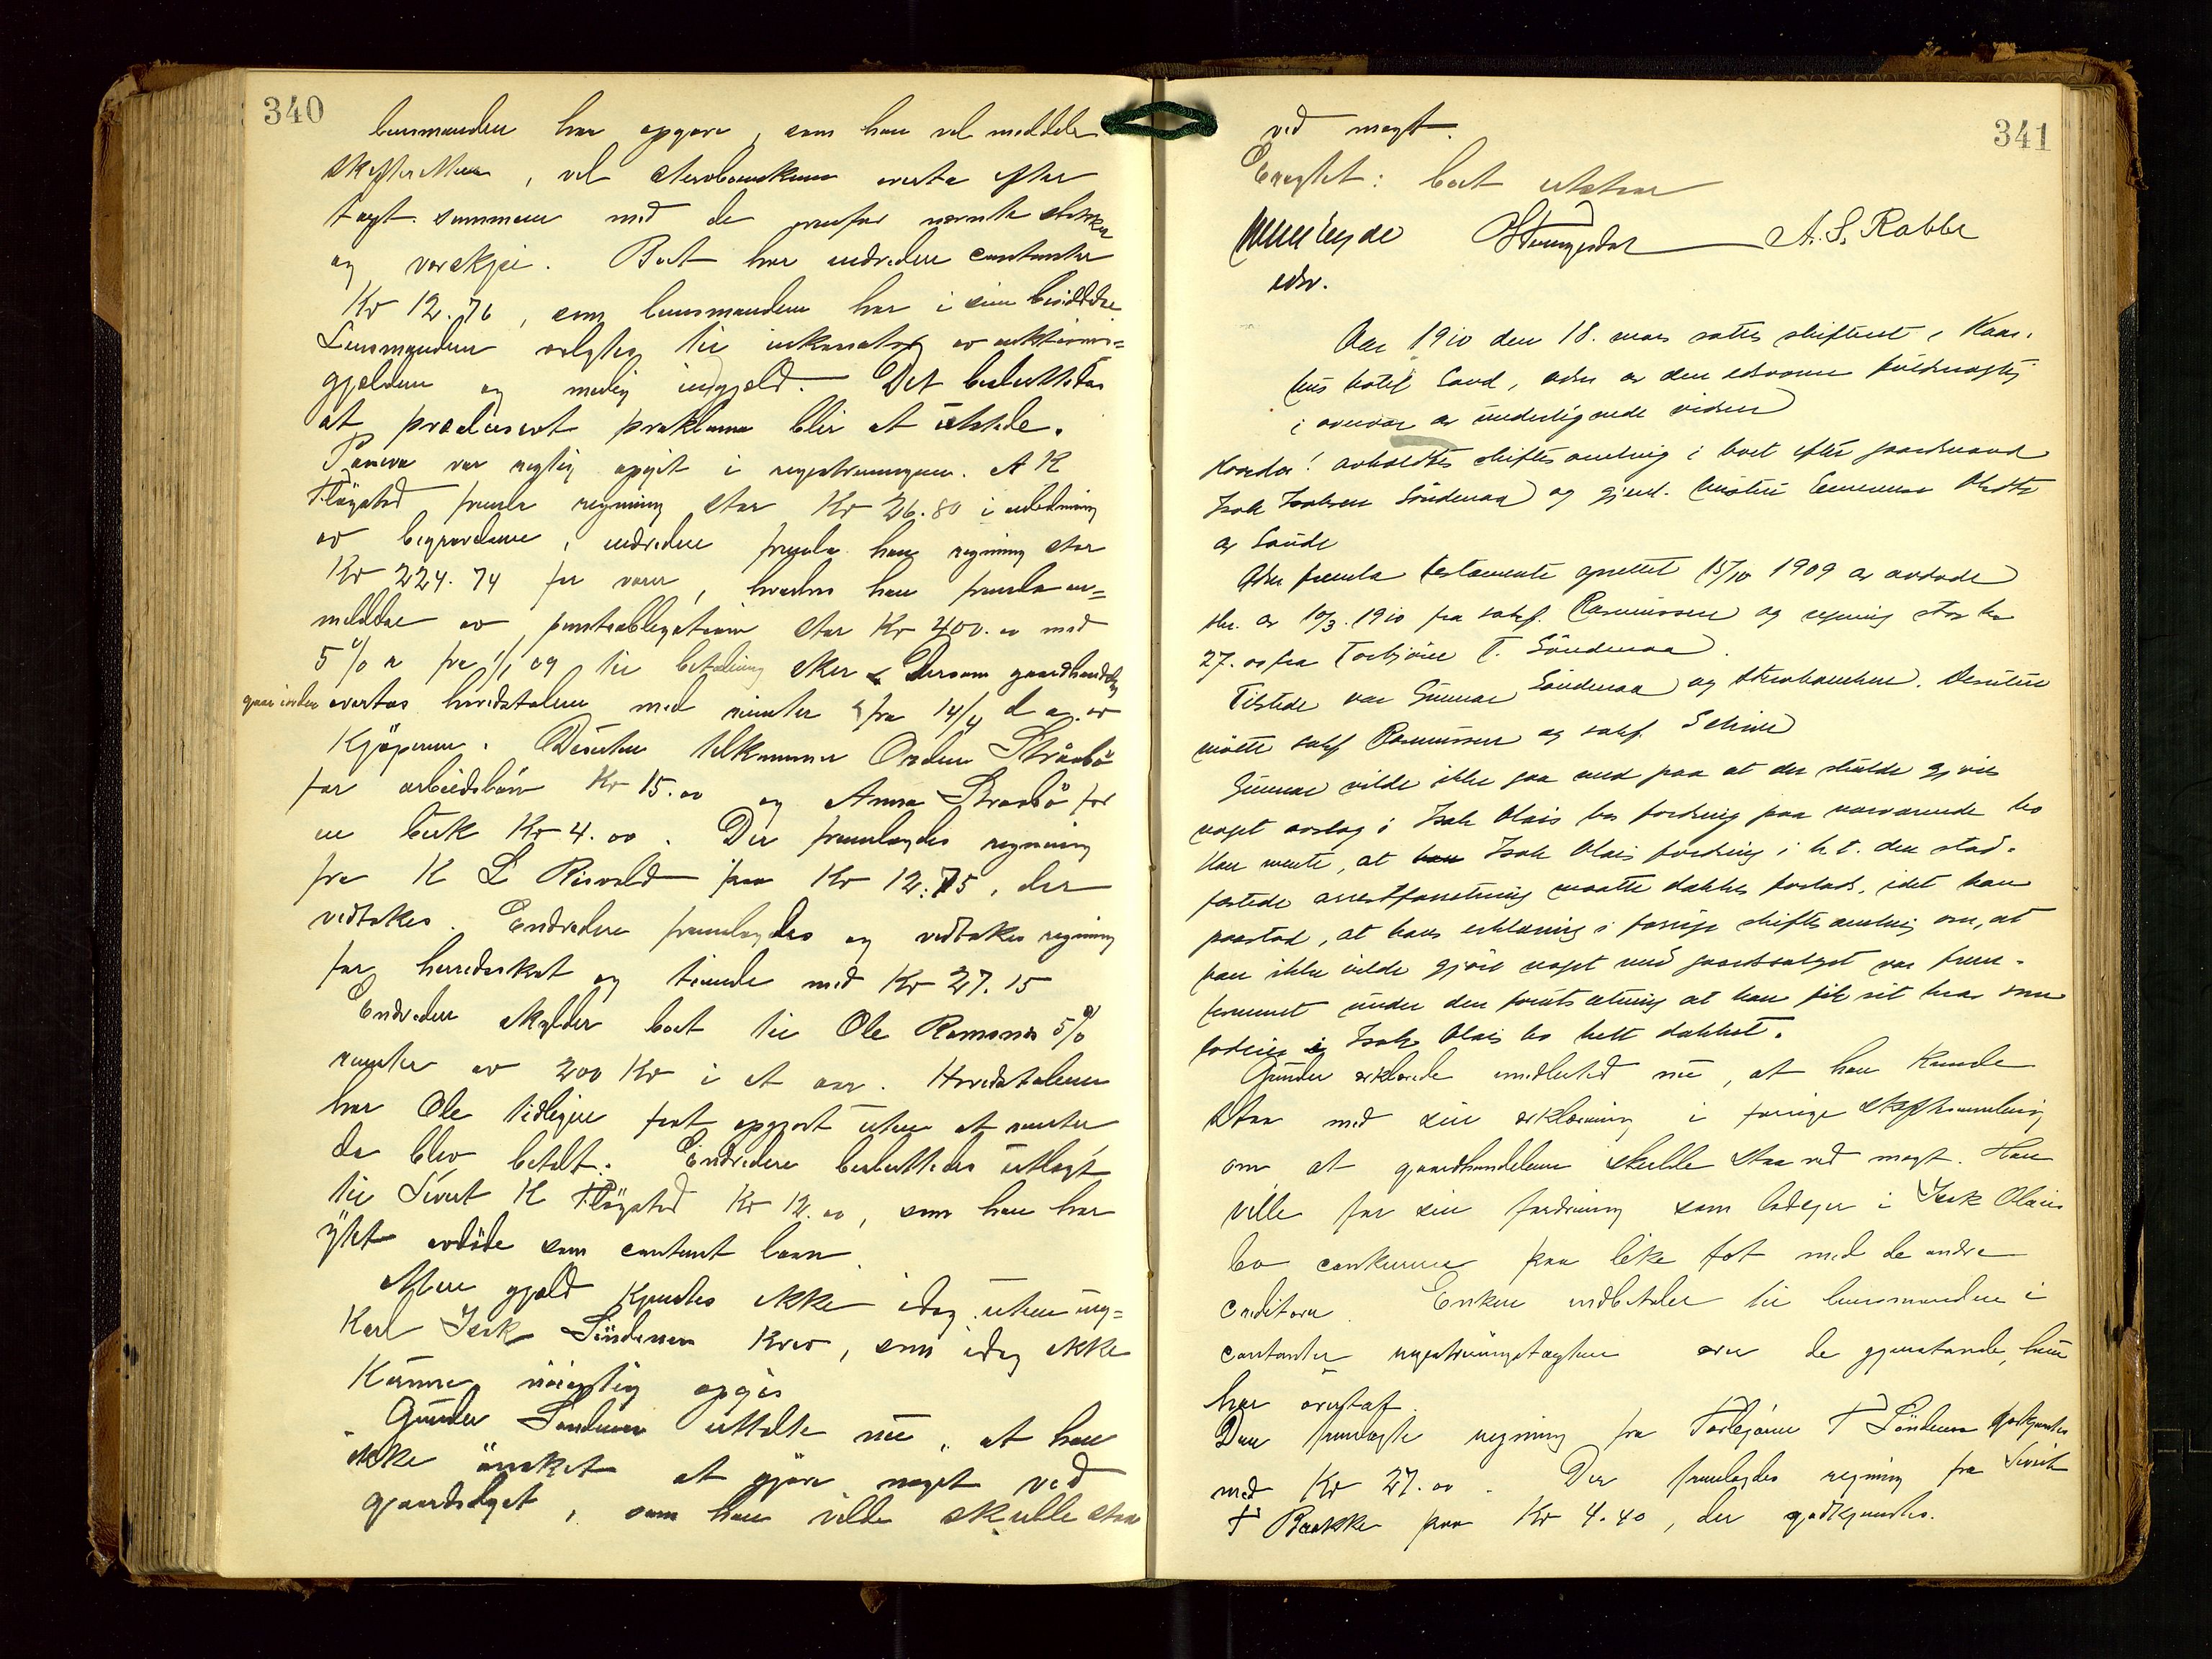 340
lensmanden har opgave, som han vil meddele
skifteretten, vil sterboenken overta efter
taxt summen med de ovenfor nævnte stykker
og vaaskjei. Boet har endvidere contanter
Kr 12.76, som lensmanden har i sin besiddelse
Lensmanden valgtes til inkassator av auktions=
gjælden og mulig indgjæld. Det besluttedes
at præclusivt proklama blir at utstede.
Panera var rigtig opgit i registreringen. A K
Fløgstad fremla regning stor Kr 26.80 i anledning
av begravelsen, endvidere fremla han regning stor
Kr 224.74 for varer, hvorhos han fremla an=
meldelse av panteobligation stor Kr 400.00 med
5 % r fra 1/1 09 til betaling sker. Dersom gaardhandelen
gaar i orden overtas hovedstolen med renter fra 14/4 d a. av
Kjøperen. Desuten tilkommer Orden Straabø
for arbeidsløn Kr 15.00 og Anna Straabø for
en buk Kr 4.00. Der fremlagdes regning
fra K L Risvold paa Kr 12.75, der
vedtokes. Endvidere fremlagdes og vedtokes regning
for herredsskat og tiende med Kr 27.15
Endvidere skylder boet til Ole Ramsnes 5 %
renter av 200 Kr i et aar. Hovedstolen
har Ole tidligere faat opgjort uten at renter
da blev betalt. Endvidere besluttedes utlagt
til Sivert K Fløgstad Kr 12.00, som han har
ydet avdøde som contant laan.
Mere gjæld kjendtes ikke idag uten ung=
karl Isak Søndenaa krav, som idag ikke
kunne nøiagtig opgis
Gunder Søndenaa uttalte nu, at han
ikke ønsket at gjøre noget ved
gaardsalget, som han vilde skulle staa
341
ved magt.
Oplæst: boet utsatte
A. S. Rabbe
edsv.
Aar 1910 den 18. mars sattes skifteret i Kaar.
hus hotel Sand, adm av den edsvorne fuldmægtig
i overvær av undertegnede vidner
Hvorda! avholdtes skiftesamling i boet efter gaardmand
Isak Isaksen Søndenaa og gjenl. hustru
av Saude
Adm fremla testamente oprettet 15/10 1909 av avdøde
skr. av 10/3. 1910 fra sakf. Rasmussen og regning stor kr
27.00 fra Torbjørn T. Søndenaa.
Tilstede var Gunnar Søndenaa og sterboenken. Desuten
møtte sakf Rasmussen og sakf. Schiør
Gunnar vilde ikke gaa med paa at der skulde gjøres
noget avslag i Isak Olais bos fordring paa nærværende bo
Han mente, at Isak Olais fordring i h. t. den stad.
fæstede arrestforretning maatte dækkes fortads, idet han
paastod, at hans erklæring i forrige skiftesamling om, at
han ikke vilde gjøre noget ved gaardsalget var frem.
kommet under den forutsætning at han fik sit krav som
lodeier i Isak Olais bo helt dækket.
Gunder erklærede imidlertid nu, at han kunde
staa ved sin erklæring i forrige skiftesamling
om at gaardhandelen skulde staa ved magt. Han
ville for sin fordring som lodeger i Isak Olais
bo conkurrere paa like fot med de andre
creditorer. Enken indbetaler til lensmanden i
contanter registreringstaxten over de gjenstande, hun
har overtat.
Den fremlagte regning fra Torbjørn T Søndenaa godkjentes
med Kr 27.00. Der fremlagdes regning fra Sivert
T Bakke paa Kr 4.40, der godkjentes.